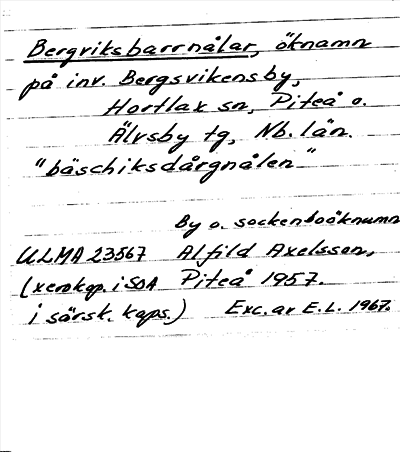 Bergviksbarrnålar, öknamn
på inv. Bergsvikensby,
Hortlax sn, Piteå o.
Älvsby tg, Nb. län.
"bäschiksdårgnålen"
By o. sockenboöknamn
ULMA 23567 Alfild Axelsson,
(xerokop. i SOA Piteå 1957.
i särsk. kaps.) Exc. av E.L. 1967.